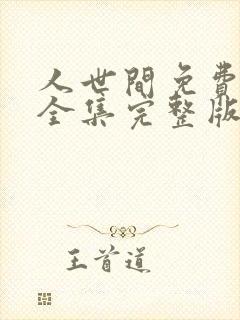 人世間免費
全集完整版
王首道